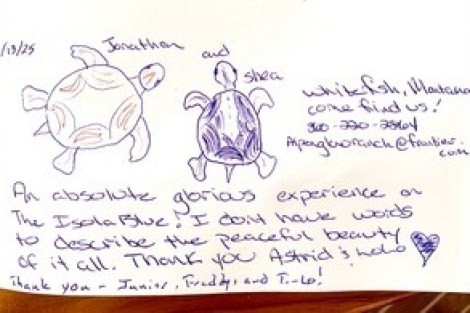 1/13/25
Jonathan and Shea
Whitefish, Montana
come find us!
@frontier.
com
An absolute glorious experience on
The Isola Blue! I don't have words
to describe the peaceful beauty
of it all. Thank you Astrid
Thank you - Junior, Freddy, and